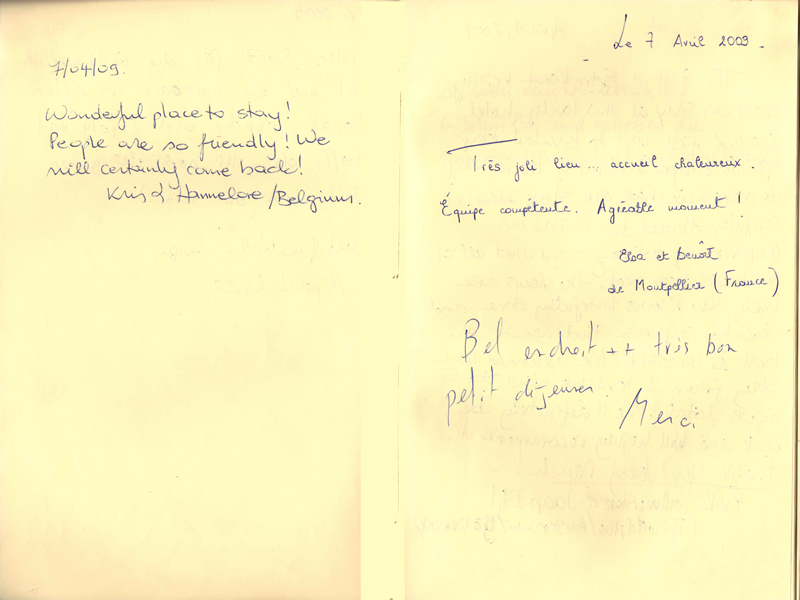 7/04/09.
Wonderful place to stay!
People are so friendly! We
will certainly come back!
Kris & Hannelore /Belgium.
Le 7 Avril 2009.
Très joli lieu... accueil chaleureux.
Équipe compétente. Agréable moment!
Elsa et Benoît
de Montpellier (France)
Bel endroit ++ très bon
petit déjeuner.
Merci